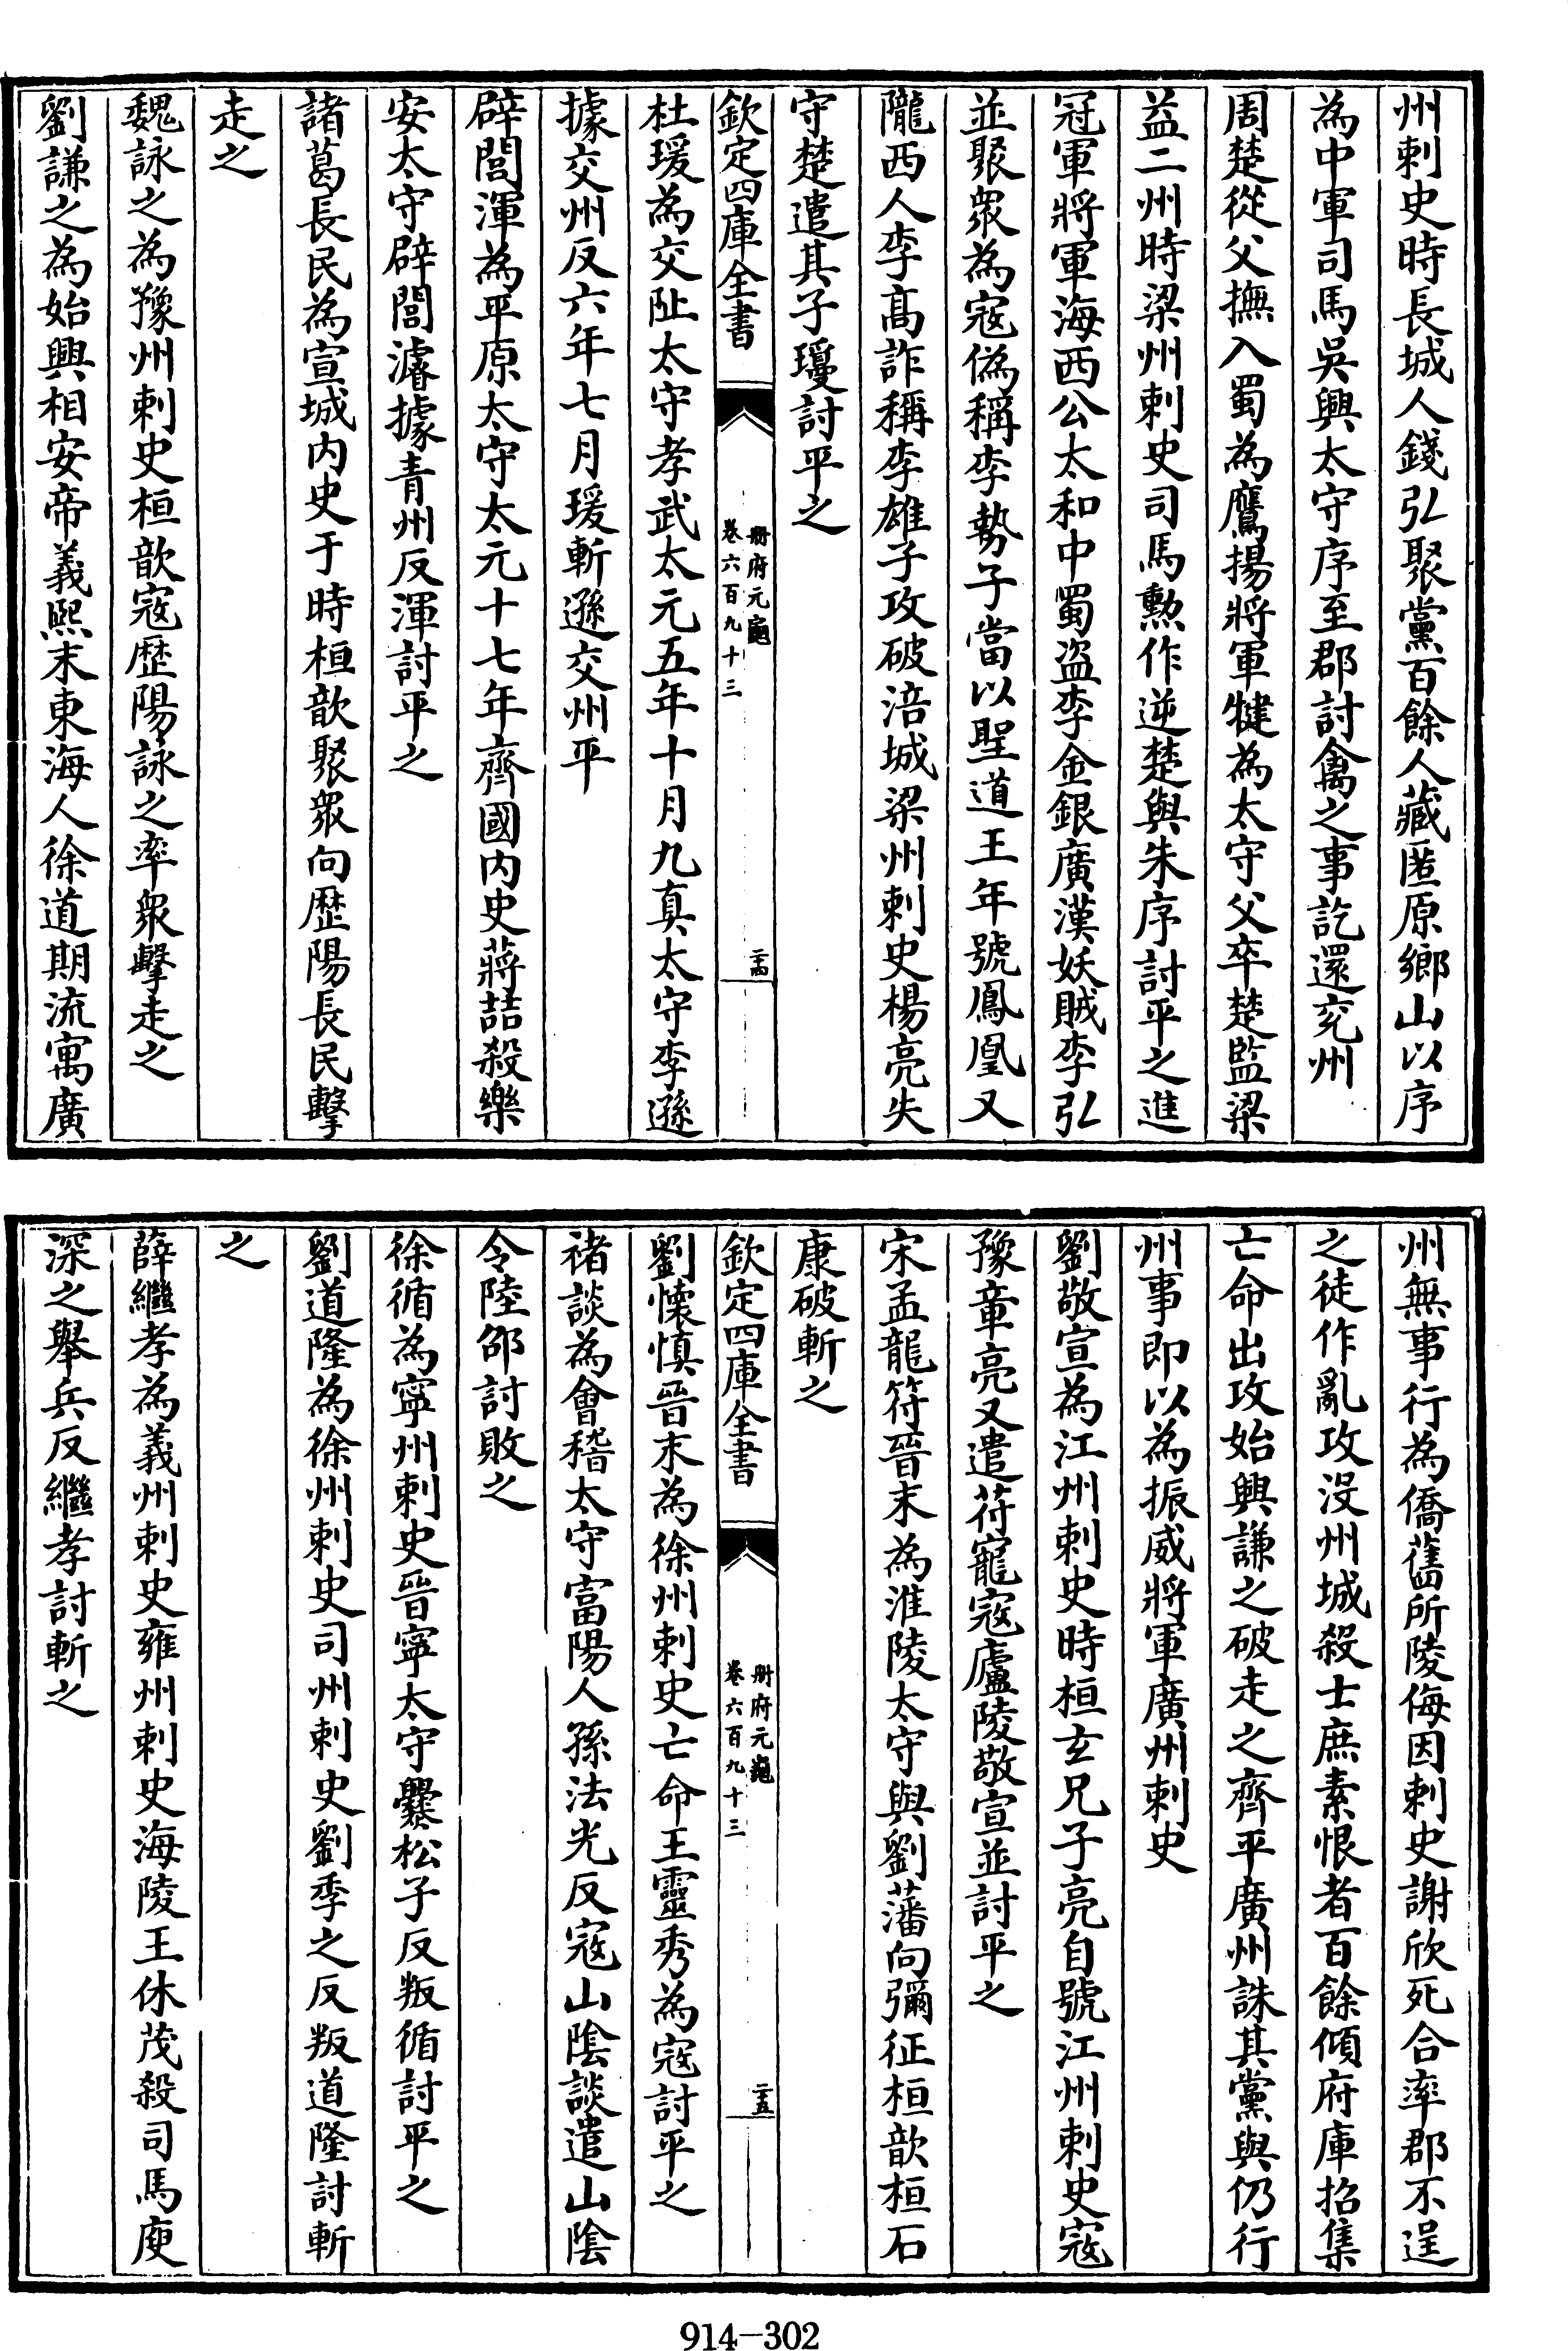 州刺史時長城人錢弘聚黨百餘人藏匿原鄉山以序
為中軍司馬吳興太守序至郡討禽之事訖還兖州
周楚從父撫入蜀為鷹揚將軍犍為太守父卒楚監梁
益二州時梁州刺史司馬勲作逆楚與朱序討平之進
冠軍將軍海西公太和中蜀盜李金銀廣漢妖賊李弘
並聚衆為寇偽稱李勢子當以聖道王年號鳳凰又
隴西人李高詐稱李雄子攻破涪城梁州刺史楊亮失
守楚遣其子瓊討平之
欽定四庫全書
册府元龜
卷六百九十三
二十四
杜瑗為交阯太守孝武太元五年十月九真太守李遜
據交州反六年七月瑗斬遜交州平
辟閭渾為平原太守太元十七年齊國内史蔣喆殺樂
安太守辟閭濬據青州反渾討平之
諸葛長民為宣城内史于時桓歆聚衆向歷陽長民擊
走之
魏詠之為豫州刺史桓歆寇歷陽詠之率衆擊走之
劉謙之為始興相安帝義熙末東海人徐道期流寓廣
州無事行為僑舊所陵侮因刺史謝欣死合率郡不逞
之徒作亂攻没州城殺士庶素恨者百餘傾府庫招集
亡命出攻始興謙之破走之齊平廣州誅其黨與仍行
州事即以為振威將軍廣州刺史
劉敬宣為江州刺史時桓玄兄子亮自號江州刺史寇
豫章亮又遣苻寵寇廬陵敬宣並討平之
宋孟龍符晉末為淮陵太守與劉藩向彌征桓歆桓石
康破斬之
欽定四庫全書
册府元龜
卷六百九十三
二十五
劉懷慎晉末為徐州刺史亡命王靈秀為寇討平之
褚談為會稽太守富陽人孫法光反寇山陰談遣山陰
令陸邵討敗之
徐循為寧州刺史晉寧太守爨松子反叛循討平之
劉道隆為徐州刺史司州刺史劉季之反叛道隆討斬
之
薛繼孝為義州刺史雍州刺史海陵王休茂殺司馬庾
深之舉兵反繼孝討斬之
914-302